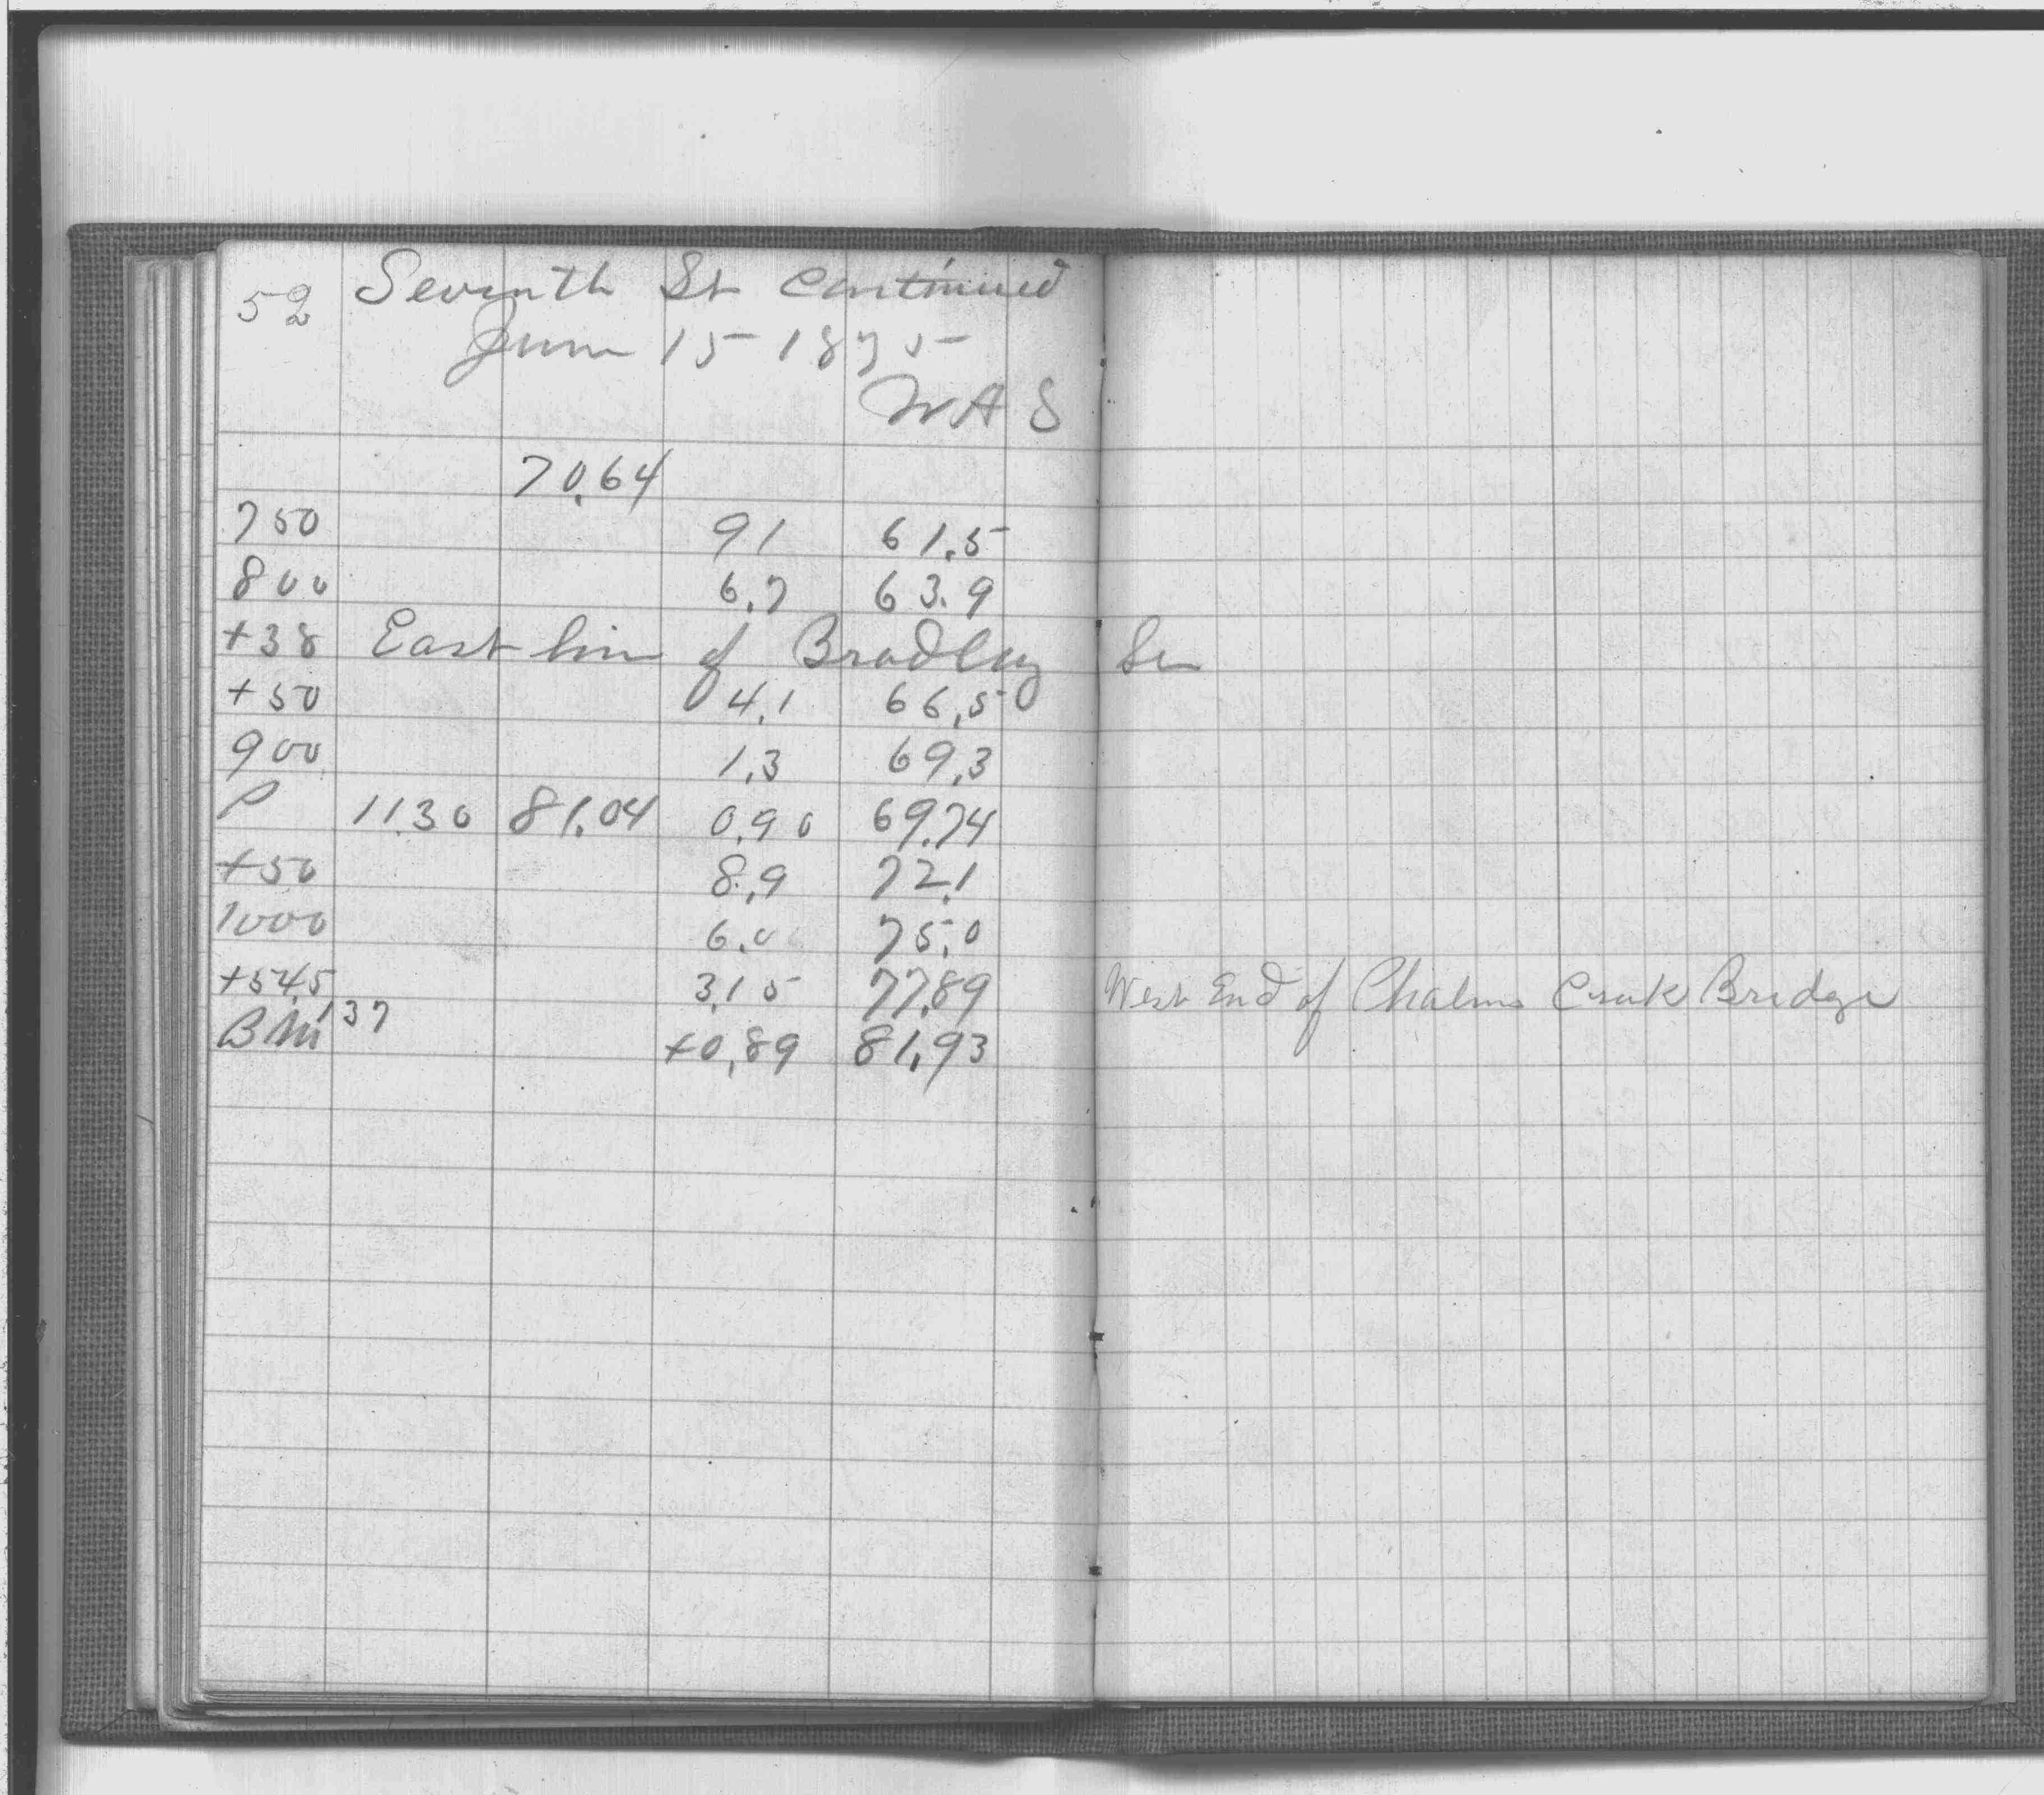 52 Seventh St Continued
June 15 1875
W A S
70.64
750 91 61.5
800 6.7 63.9
+38 East line of Bradley Ln
+50 4.1 66.5
900 1.3 69.3
P 11.30 81.04 0.90 69.74
+50 8.9 72.1
1000 6.0 75.0
+54.5 3.15 77.89 West End of Chalms Creek Bridge
BM 137 +0.89 81.93